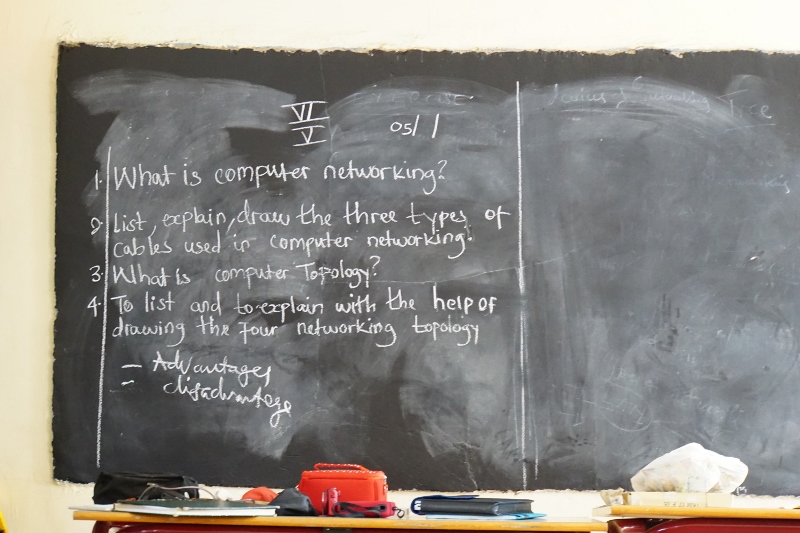 VI
V
05/ /
1. What is computer networking?
2. List, explain, draw the three types of
cables used in computer networking.
3. What is computer Topology?
4. To list and to explain with the help of
drawing the four networking topology
– Advantages
– disadvantage